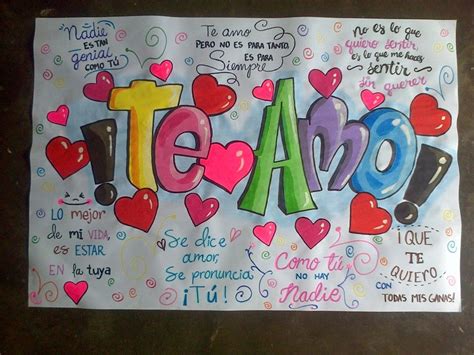 Nadie
ES TAN
genial
COMO TÚ
Te amo
PERO NO ES PARA TANTO,
ES PARA
Siempre
no es lo que
quiero sentir,
es lo que me haces
sentir
sin querer
¡TE AMO!
LO mejor
de mi VIDA,
es ESTAR
EN la tuya
Se dice
amor,
Se pronuncia
¡Tú!
Como tú
NO HAY
Nadie
¡QUE
TE
QUIERO
CON
TODAS MIS GANAS!